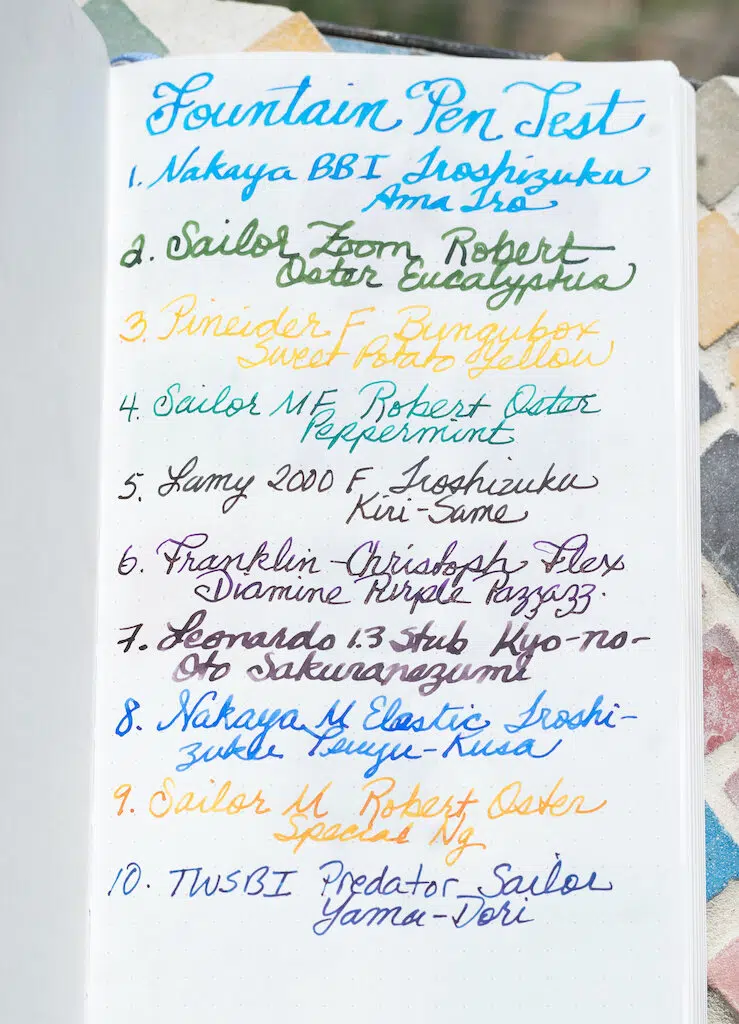 Fountain Pen Test
1. Nakaya BBI Iroshizuku
Ama Iro
2. Sailor Zoom Robert
Oster Eucalyptus
3. Pineider F Bungubox
Sweet Potato Yellow
4. Sailor MF Robert Oster
Peppermint
5. Lamy 2000 F Iroshizuku
Kiri-Same
6. Franklin-Christoph Flex
Diamine Purple Pazzazz.
7. Leonardo 1.3 Stub Kyo-no-
Oto Sakuranezumi
8. Nakaya M Elastic Iroshi-
zuku Tsuyu-Kusa
9. Sailor M Robert Oster
Special Ng
10. TWSBI Predator Sailor
Yama-Dori